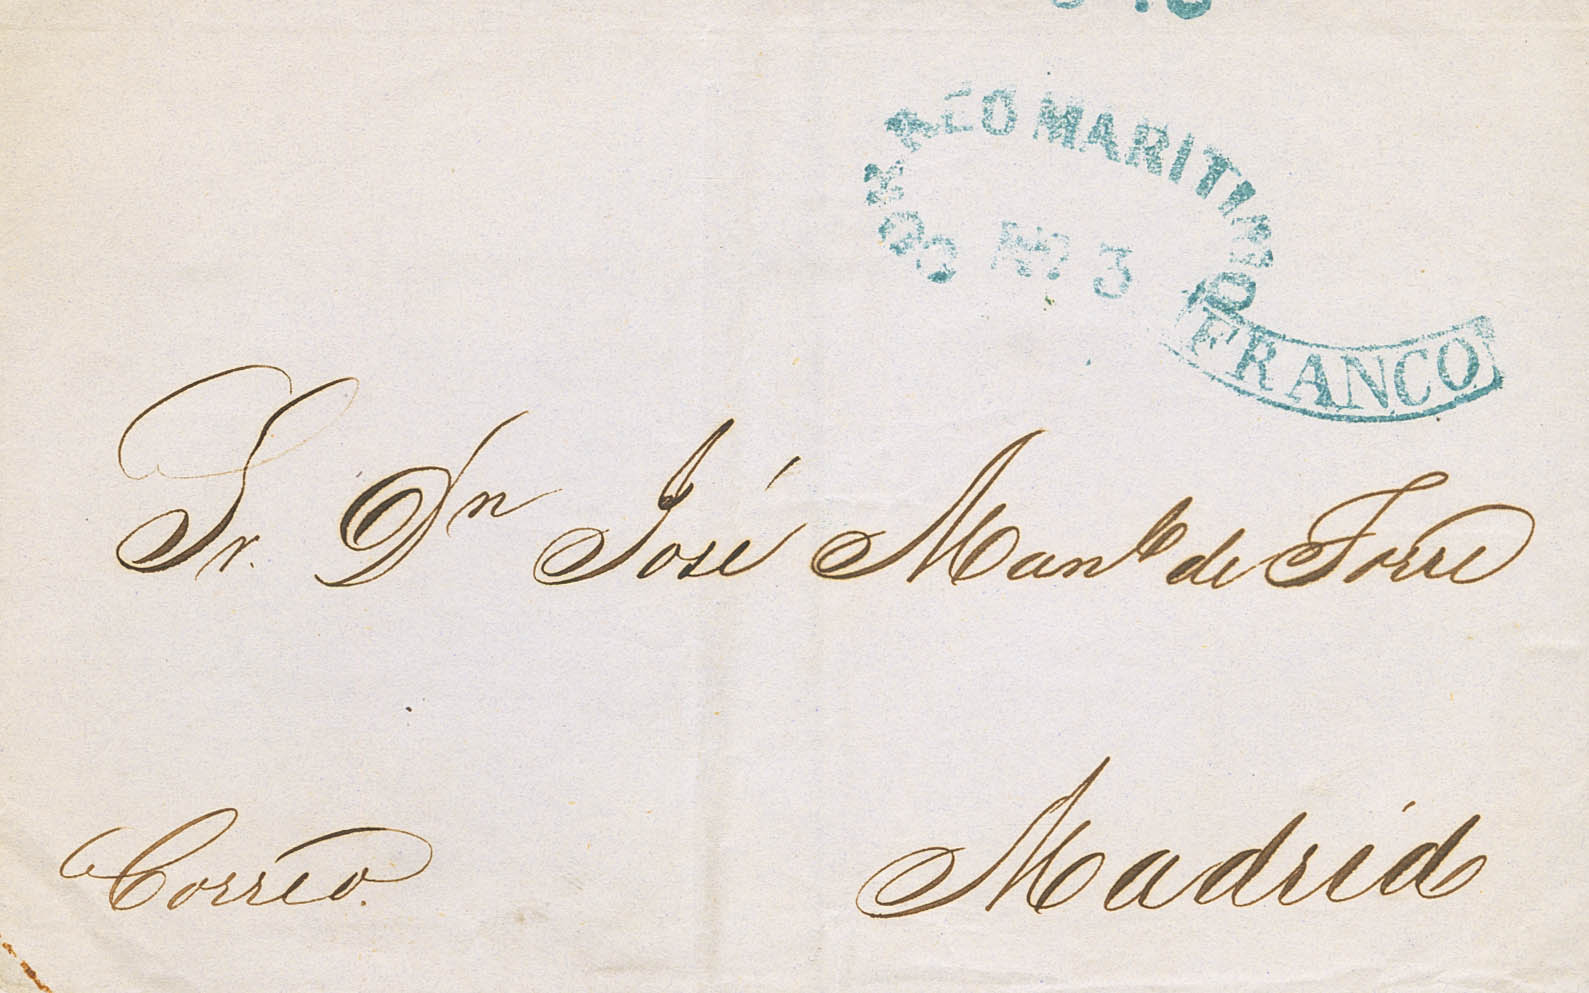 CORREO MARITIMO
Nº 3
FRANCO
Sr. Dn José Manl. de Torre
Madrid
Correo.